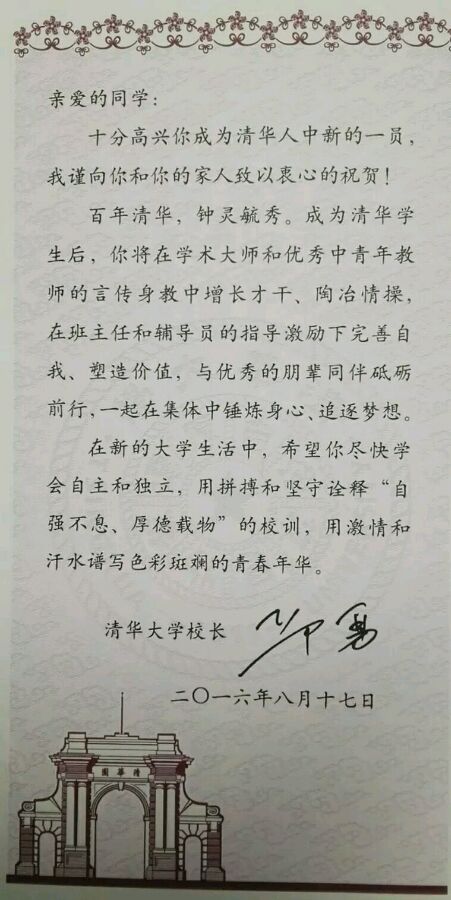 亲爱的同学：
十分高兴你成为清华人中新的一员，
我谨向你和你的家人致以衷心的祝贺！
百年清华，钟灵毓秀。成为清华学
生后，你将在学术大师和优秀中青年教
师的言传身教中增长才干、陶冶情操，
在班主任和辅导员的指导激励下完善自
我、塑造价值，与优秀的朋辈同伴砥砺
前行，一起在集体中锤炼身心、追逐梦想。
在新的大学生活中，希望你尽快学
会自主和独立，用拼搏和坚守诠释“自
强不息、厚德载物”的校训，用激情和
汗水谱写色彩斑斓的青春年华。
清华大学校长 邱勇
二〇一六年八月十七日
園華清